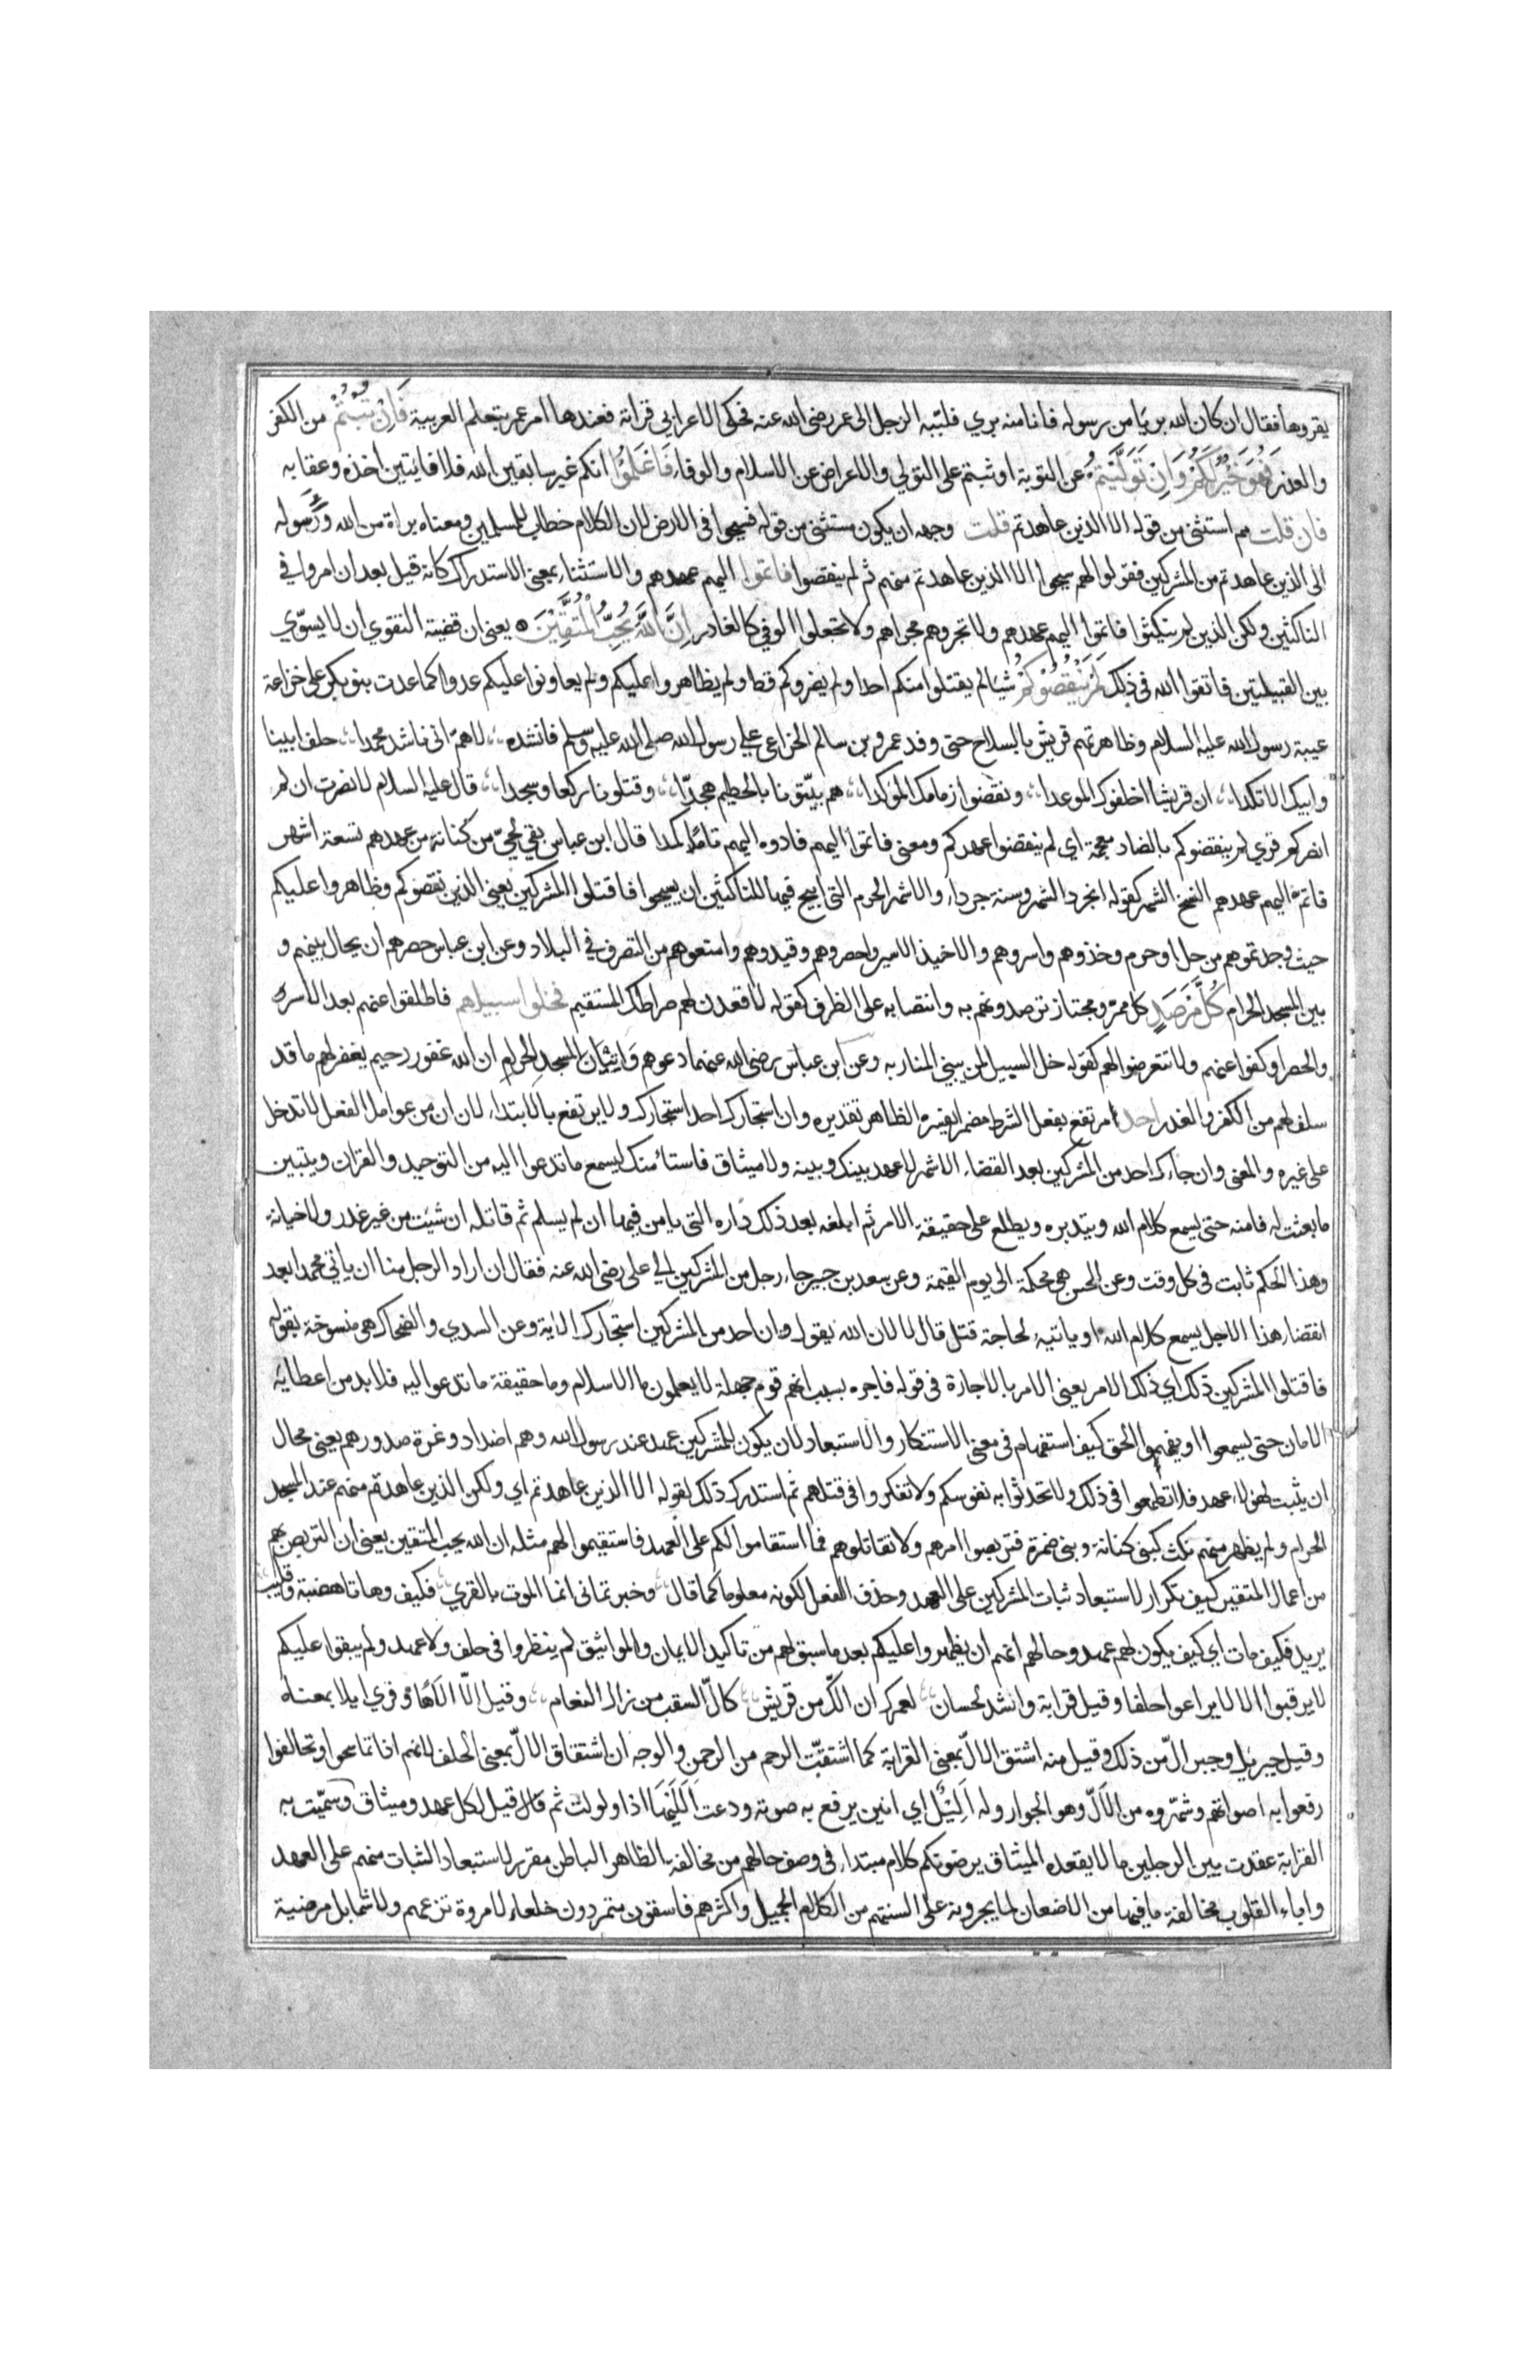 يقروها فقال ان كان الله بريا من رسوله فانا منه بري فلببه الرجل الى عمر رضى الله عنه فحكى الاعرابي قراته فعندها امر عمر بتعلم العربية فَاِنْ تُبْتُمْ من الكفر
والغدر فَهُوَ خَيْرٌ لَكُمْ وَاِنْ تَوَلَّيْتُمْ عن التوبة او ثبتم على التولي والاعراض عن الاسلام والوفاء فَاعْلَمُوْا انكم غير سابقين الله فلا فايتين اخذه وعقابه
فان قلت مم استثنى من قوله الا الذين عاهدتم قلت وجهه ان يكون مستثنى من قوله فسيحوا فى الارض لان الكلام خطاب للمسلمين ومعناه براة من الله ورسوله
الى الذين عاهدتم من المشركين فقولوا لهم سيحوا الا الذين عاهدتم منهم ثم لم ينقصوا فاتموا اليهم عهدهم والاستثناء بمعنى الاستدراك كانه قيل بعد ان امروا في
الناكثين ولكن الذين لم ينكثوا فاتموا اليهم عهدهم ولا تجروهم مجراهم ولا تجعلوا الوفي كالغادر اِنَّ اللهَ يُحِبُّ الْمُتَّقِيْنَ يعنى ان قضية التقوي ان لا يسوي
بين القبيلتين فاتقوا الله فى ذلك لَمْ يَنْقُصُوْكُمْ شيا لم يقتلوا منكم احدا ولم يضروكم قط ولم يظاهروا عليكم ولم يعاونوا عليكم عدوا كما عدت بنو بكر على خزاعة
عيبة رسول الله عليه السلام وظاهرتهم قريش بالسلاح حتى وفد عمرو بن سالم الخزاعى على رسول الله صلى الله عليه وسلم فانشده لاهم انى ناشد محمدا حلف ابينا
وابيك الاتلدا ان قريشا اخلفوك الموعدا ونقضوا زمامك الموكدا هم بيتونا بالحطيم هجدا وقتلونا ركعا وسجدا قال عليه السلام لا نصرت ان لم
انصركم قري لم ينقضوكم بالضاد معجمة اي لم ينقضوا عهدكم ومعنى فاتموا اليهم فادوه اليهم تاما كملا قال ابن عباس بقي لحي من كنانة من عهدهم تسعة اشهر
فاتم اليهم عهدهم انسلخ الشهر كقوله انجرد الشهر وسنة جرداء والاشهر الحرم التى ابيح فيها للناكثين ان يسيحوا فاقتلوا المشركين يعنى الذين نقضوكم وظاهروا عليكم
حيث وجدتموهم من حل او حرم وخذوهم واسروهم والاخيذ الاسير واحصروهم وقيدوهم وامنعوهم من التصرف في البلاد وعن ابن عباس حصرهم ان يحال بينهم و
بين المسجد الحرام كُلَّ مَرْصَدٍ كل ممر ومجتاز ترصدونهم به وانتصابه على الظرف كقوله لاقعدن لهم صراطك المستقيم فخلوا سبيلهم فاطلقوا عنهم بعد الاسر
والحصر او كفوا عنهم ولا تتعرضوا لهم كقوله خل السبيل لمن يبني المنار به وعن ابن عباس رضى الله عنهما دعوهم وَاِتْيَان المسجد الحرام ان الله غفور رحيم يغفر لهم ما قد
سلف لهم من الكفر والغدر احد مرتفع بفعل الشرط مضمرا يفسره الظاهر تقديره وان استجارك احد استجارك ولا يرتفع بالابتداء لان ان من عوامل الفعل لا تدخل
على غيره والمعنى وان جاءك احد من المشركين بعد القضاء الاشهر لا عهد بينك وبينه ولا ميثاق فاستامنك ليسمع ما تدعوا اليه من التوحيد والقران ويتبين
ما بعثت له فامنه حتى يسمع كلام الله ويتدبره ويطلع على حقيقة الامر ثم ابلغه بعد ذلك داره التى يامن فيها ان لم يسلم ثم قاتله ان شئت من غير غدر ولا خيانة
وهذا الحكم ثابت فى كل وقت وعن الحسن هى محكمة الى يوم القيمة وعن سعد بن جبير جاء رجل من المشركين الى على رضى الله عنه فقال ان اراد الرجل منا ان ياتى محمدا بعد
انقضاء هذا الاجل يسمع كلام الله او ياتيه لحاجة قتل قال لا لان الله يقول وان احد من المشركين استجارك الاية وعن السدي والضحاك هى منسوخة بقوله
فاقتلوا المشركين ذلك اي ذلك الامر يعنى الامر بالاجارة فى قوله فاجره بسبب انهم قوم جهلة لا يعلمون ما الاسلام وما حقيقة ما تدعوا اليه فلا بد من اعطائه
الامان حتى يسمعوا او يفهموا الحق كيف استفهام فى معنى الاستنكار والاستبعاد لان يكون للمشركين عهد عند رسول الله وهم اضداد وغرة صدورهم يعنى محال
ان يثبت لهولاء عهد فلا تطمعوا فى ذلك ولا تحدثوا به نفوسكم ولا تفكروا فى قتلهم ثم استدرك ذلك لقوله الا الذين عاهدتم اي ولكن الذين عاهدتم منهم عند المسجد
الحرام ولم يظهر منهم نكث كبنى كنانة وبنى ضمرة فتربصوا امرهم ولا تقاتلوهم فما استقاموا لكم على العهد فاستقيموا لهم مثله ان الله يحب المتقين يعنى ان التربص بهم
من اعمال المتقين كيف تكرار لاستبعاد ثبات المشركين على العهد وحذف الفعل لكونه معلوما كما قال وخبرتمانى انما الموت بالقري فكيف وهاتا هضبة وقليب
يريد فكيف مات اي كيف يكون لهم عهد وحالهم انهم ان يظهروا عليكم بعد ما سبق لهم من تاكيد الايمان والمواثيق لم ينظروا فى حلف ولا عهد ولم يبقوا عليكم
لا يرقبوا الا لا يراعوا حلفا وقيل قرابة وانشد لحسان لعمرك ان الك من قريش كال السقب من رال النعام وقيل الا الاها وقري ايلا بمعناه
وقيل جبريل وجبرال من ذلك وقيل منه اشتق الال بمعنى القرابة كما اشتقت الرحم من الرحمن والوجه ان اشتقاق الال بمعنى الحلف لانهم اذا تماسحوا وتحالفوا
رفعوا به اصواتهم وشهروه من الال وهو الجوار وله اَلِيْلٌ اي انين يرفع به صوته ودعت اَلَلَيْهَا اذا ولولت ثم قال قيل لكل عهد وميثاق وسميت به
القرابة عقدت بين الرجلين ما لا يعقده الميثاق يرضونكم كلام مبتداء فى وصف حالهم من مخالفة الظاهر الباطن مقرر لاستبعاد الثبات منهم على العهد
واباء القلوب مخالفة ما فيها من الاضعان لما يجرونه على السنتهم من الكلام الجميل واكثرهم فاسقون متمردون خلعاء لا مروة تزعهم ولا شمايل مرضية